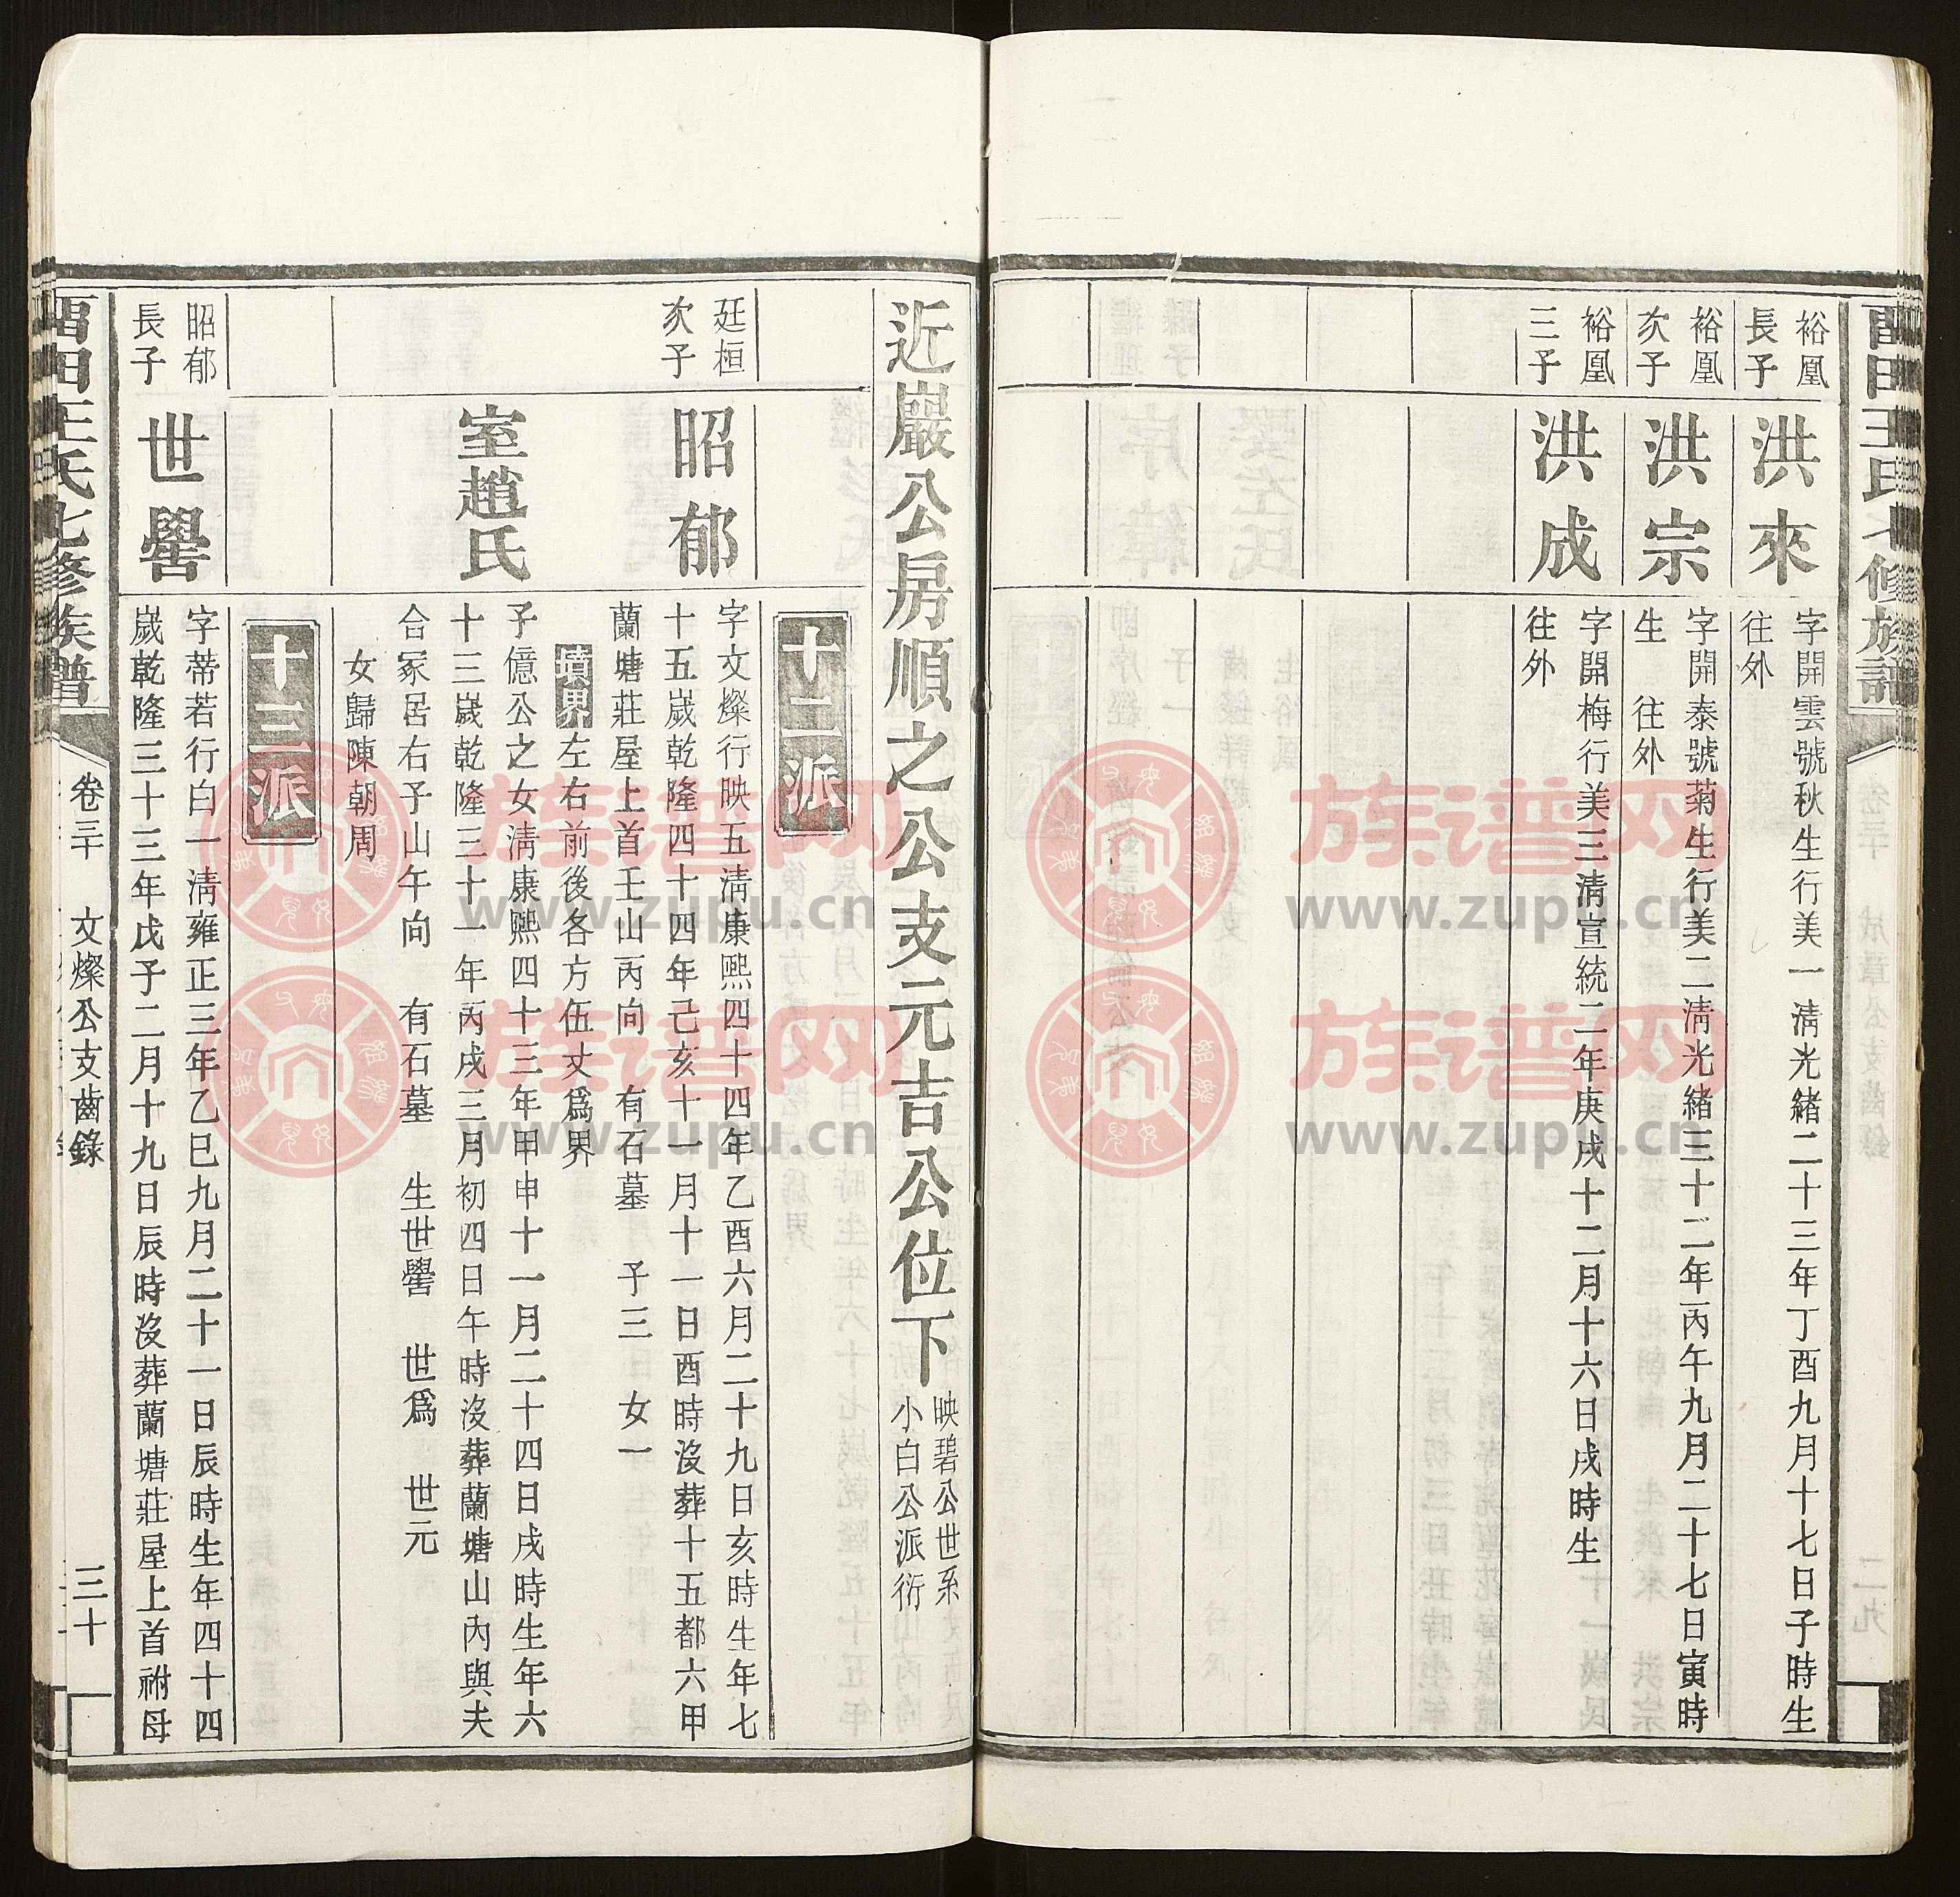 裕凰
長子
洪來
字開雲號秋生行美一清光緒二十三年丁酉九月十七日子時生
往外
裕凰
次子
洪宗
字開泰號菊生行美二清光緒三十二年丙午九月二十七日寅時
生　往外
裕凰
三子
洪成
字開梅行美三清宣統二年庚戌十二月十六日戌時生
往外
近巖公房順之公支元吉公位下
映碧公世系
小白公派衍
十二派
廷桓
次子
昭郁
字文燦行映五清康熙四十四年乙酉六月二十九日亥時生年七
十五歲乾隆四十四年己亥十一月十一日酉時沒葬十五都六甲
蘭塘莊屋上首壬山丙向　有石墓　子三　女一
墳界左右前後各方伍丈爲界
室趙氏
子億公之女清康熙四十三年甲申十一月二十四日戌時生年六
十三歲乾隆三十一年丙戌三月初四日午時沒葬蘭塘山內與夫
合冢居右子山午向　有石墓　生世嚳　世爲　世元
女歸陳朝周
十三派
昭郁
長子
世嚳
字蒂若行白一清雍正三年乙巳九月二十一日辰時生年四十四
歲乾隆三十三年戊子二月十九日辰時沒葬蘭塘莊屋上首祔母
王氏七修族譜
卷三十　文燦公支齒錄
三十
族谱网
www.zupu.cn
族谱网
www.zupu.cn
族谱网
www.zupu.cn
族谱网
www.zupu.cn